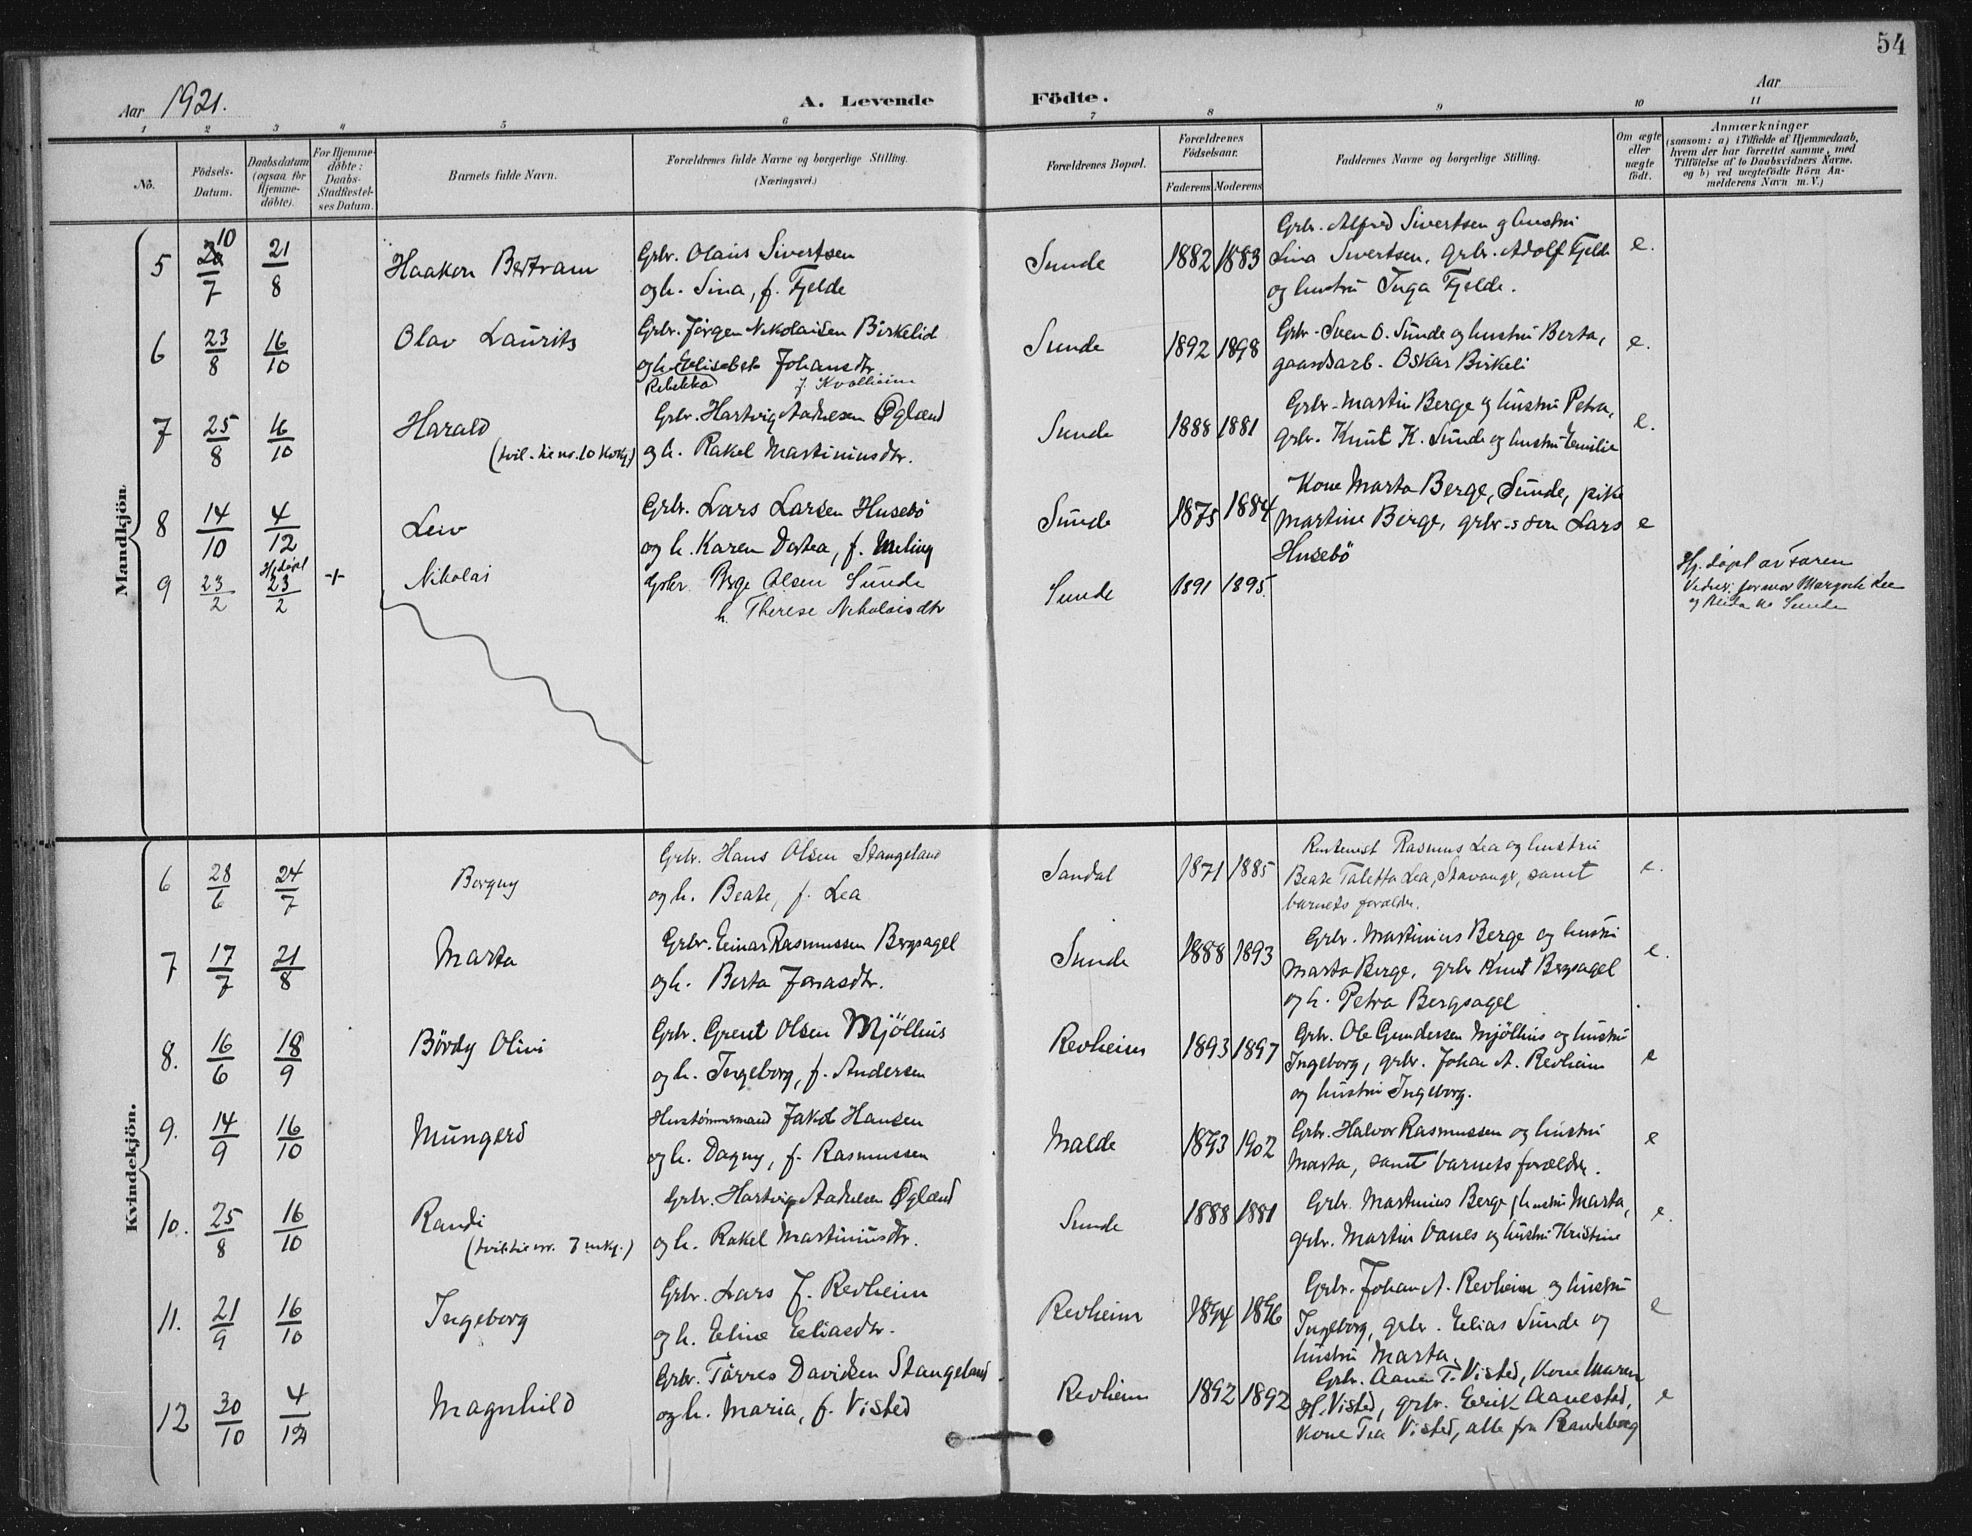 54
Aar 1921.
A. Levende Födte.
Aar
1 2 3 4 5 6 7 8 9 10 11
No.
Födsels-Datum.
Daabsdatum (ogsaa for Hjemme-döbte).
For Hjemme-döbte: Daabs-Stadfæstel-ses Datum.
Barnets fulde Navn.
Forældrenes fulde Navne og borgerlige Stilling.
(Næringsvei.)
Forældrenes Bopæl.
Forældrenes Födselsaar.
Faderens Moderens
Faddernes Navne og borgerlige Stilling.
Om ægte eller uægte födt.
Anmærkninger
(saasom: a) i Tilfælde af Hjemmedaab,
hvem der har forrettet samme, med
Tilföielse af to Daabsvidners Navne.
og b) ved uægtefödte Börn An-
melderens Navn m. V.)
Mandkjön
5 10/7 21/8 Haakon Bertram Grbr. Olaus Sivertsen Sunde 1882 1883 Grbr. Alfred Sivertsen og hustru e.
og h. Sina, f. Fjelde Lina Sivertsen, grbr. Adolf Fjelde
og hustru Inga Fjelde.
6 23/8 16/10 Olav Laurits Grbr. Jörgen Nikolaisen Birkelid Sunde 1892 1898 Grbr. Sven O. Sunde og hustru Berta, e.
og h. Elisabet Johansdtr gaardsarb. Oskar Birkeli
Rebekka f. Kvalheim
7 25/8 16/10 Harald Grbr. Hartvig Aadnesen Øgland Sunde 1888 1881 Grbr. Martin Berge og hustru Petra, e.
(tvil. til nr. 10 kvkj.) og h. Rakel Martiniusdtr. grbr. Knut K. Sunde og hustru Emilie
8 14/10 4/12 Leiv Grbr. Lars Larsen Husebö Sunde 1875 1884 Kone Marta Berge, Sunde, pike e
og h. Karen Dortea, f. Meling Martine Berge, grbr.s sön Lars
Husebö
9 23/2 Hj.döpt 23/2 + Nikolai Grbr. Berge Olsen Sunde Sunde 1891 1895. Hj. döpt av faren
h. Therese Nikolaisdtr Vidner: formor Margrete Lee
og Sunde
Kvindekjön.
6 28/6 24/7 Borgny Grbr. Hans Olsen Stangeland Sandal 1871 1885 Rasmus Lea og hustru e.
og h. Beate, f. Lea Beate Taletta Lea, Stavanger, samt
barnets forældre.
7 17/7 21/8 Marta Grbr. Einar Rasmussen Bergsagel Sunde 1888 1893 Grbr. Martinius Berge og hustru e.
og h. Berta Jonasdtr. Marta Berge, grbr Knut Bergsagel
og h. Petra Bergsagel
8. 16/6 18/9 Bördy Olivi Grbr. Grent Olsen Mjölhus Revheim 1893 1897 Grbr. Ole Gundersen Mjölhus og hustru e
og h. Ingeborg, f. Andersen Ingeborg, grbr. Johan A. Revheim
og hustru Ingeborg.
9. 14/9 16/10 Mungerd Hustömmermand Jakob Hansen Malde 1893 1902 Grbr. Halvor Rasmussen og hustru e
og h. Dagny, f. Rasmussen Marta, samt barnets forældre.
10. 25/8 16/10 Randi Grbr. Hartvig Aadnesen Øgland Sunde 1888 1881 Grbr. Martinius Berge, hustru Marta, e.
(tvil. til nr. 7 mkj.) og h. Rakel Martiniusdtr. grbr. Martin Vanes og hustru Kristine
11. 21/9 16/10 Ingeborg Grbr. Lars J. Revheim Revheim 1894 1896 Grbr. Johan A. Revheim og hustru e
og h. Eline Eliasdtr. Ingeborg, grbr. Elias Sunde og
hustru Marta.
12 30/10 4/12 Magnhild Grbr. Törres Davidsen Stangeland Revheim 1892 1892 Grbr. Aanen T. Visted, Kone Maren e
og h. Maria, f. Visted H. Visted, grbr. Eerik Aanestad,
Kone Tea Visted, alle fra Randeberg